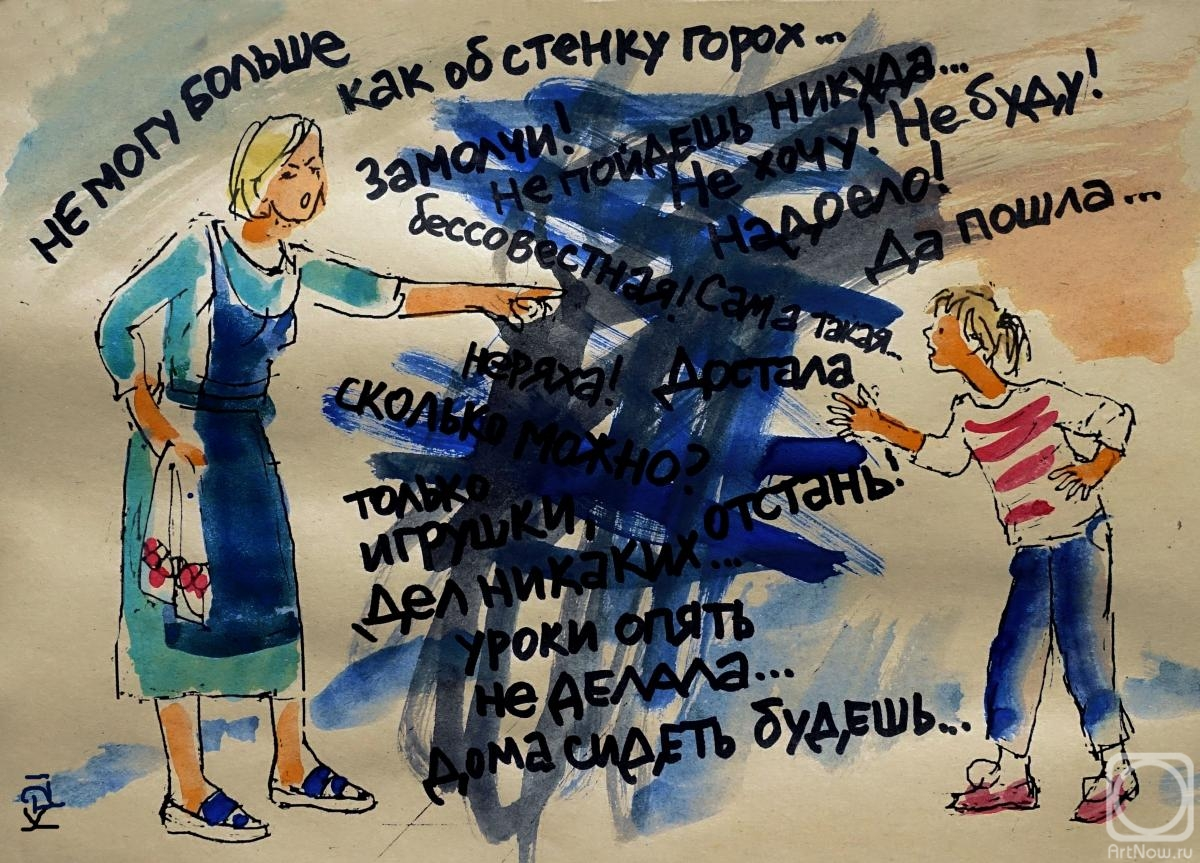 не могу больше
как об стенку горох...
Замолчи!
не пойдешь никуда...
Не хочу! Не буду!
надоело!
бессовестная! Сама такая...
Да пошла...
неряха! Достала
сколько можно?
только
игрушки,
отстань!
дел никаких...
уроки опять
не делала...
дома сидеть будешь...
ArtNow.ru